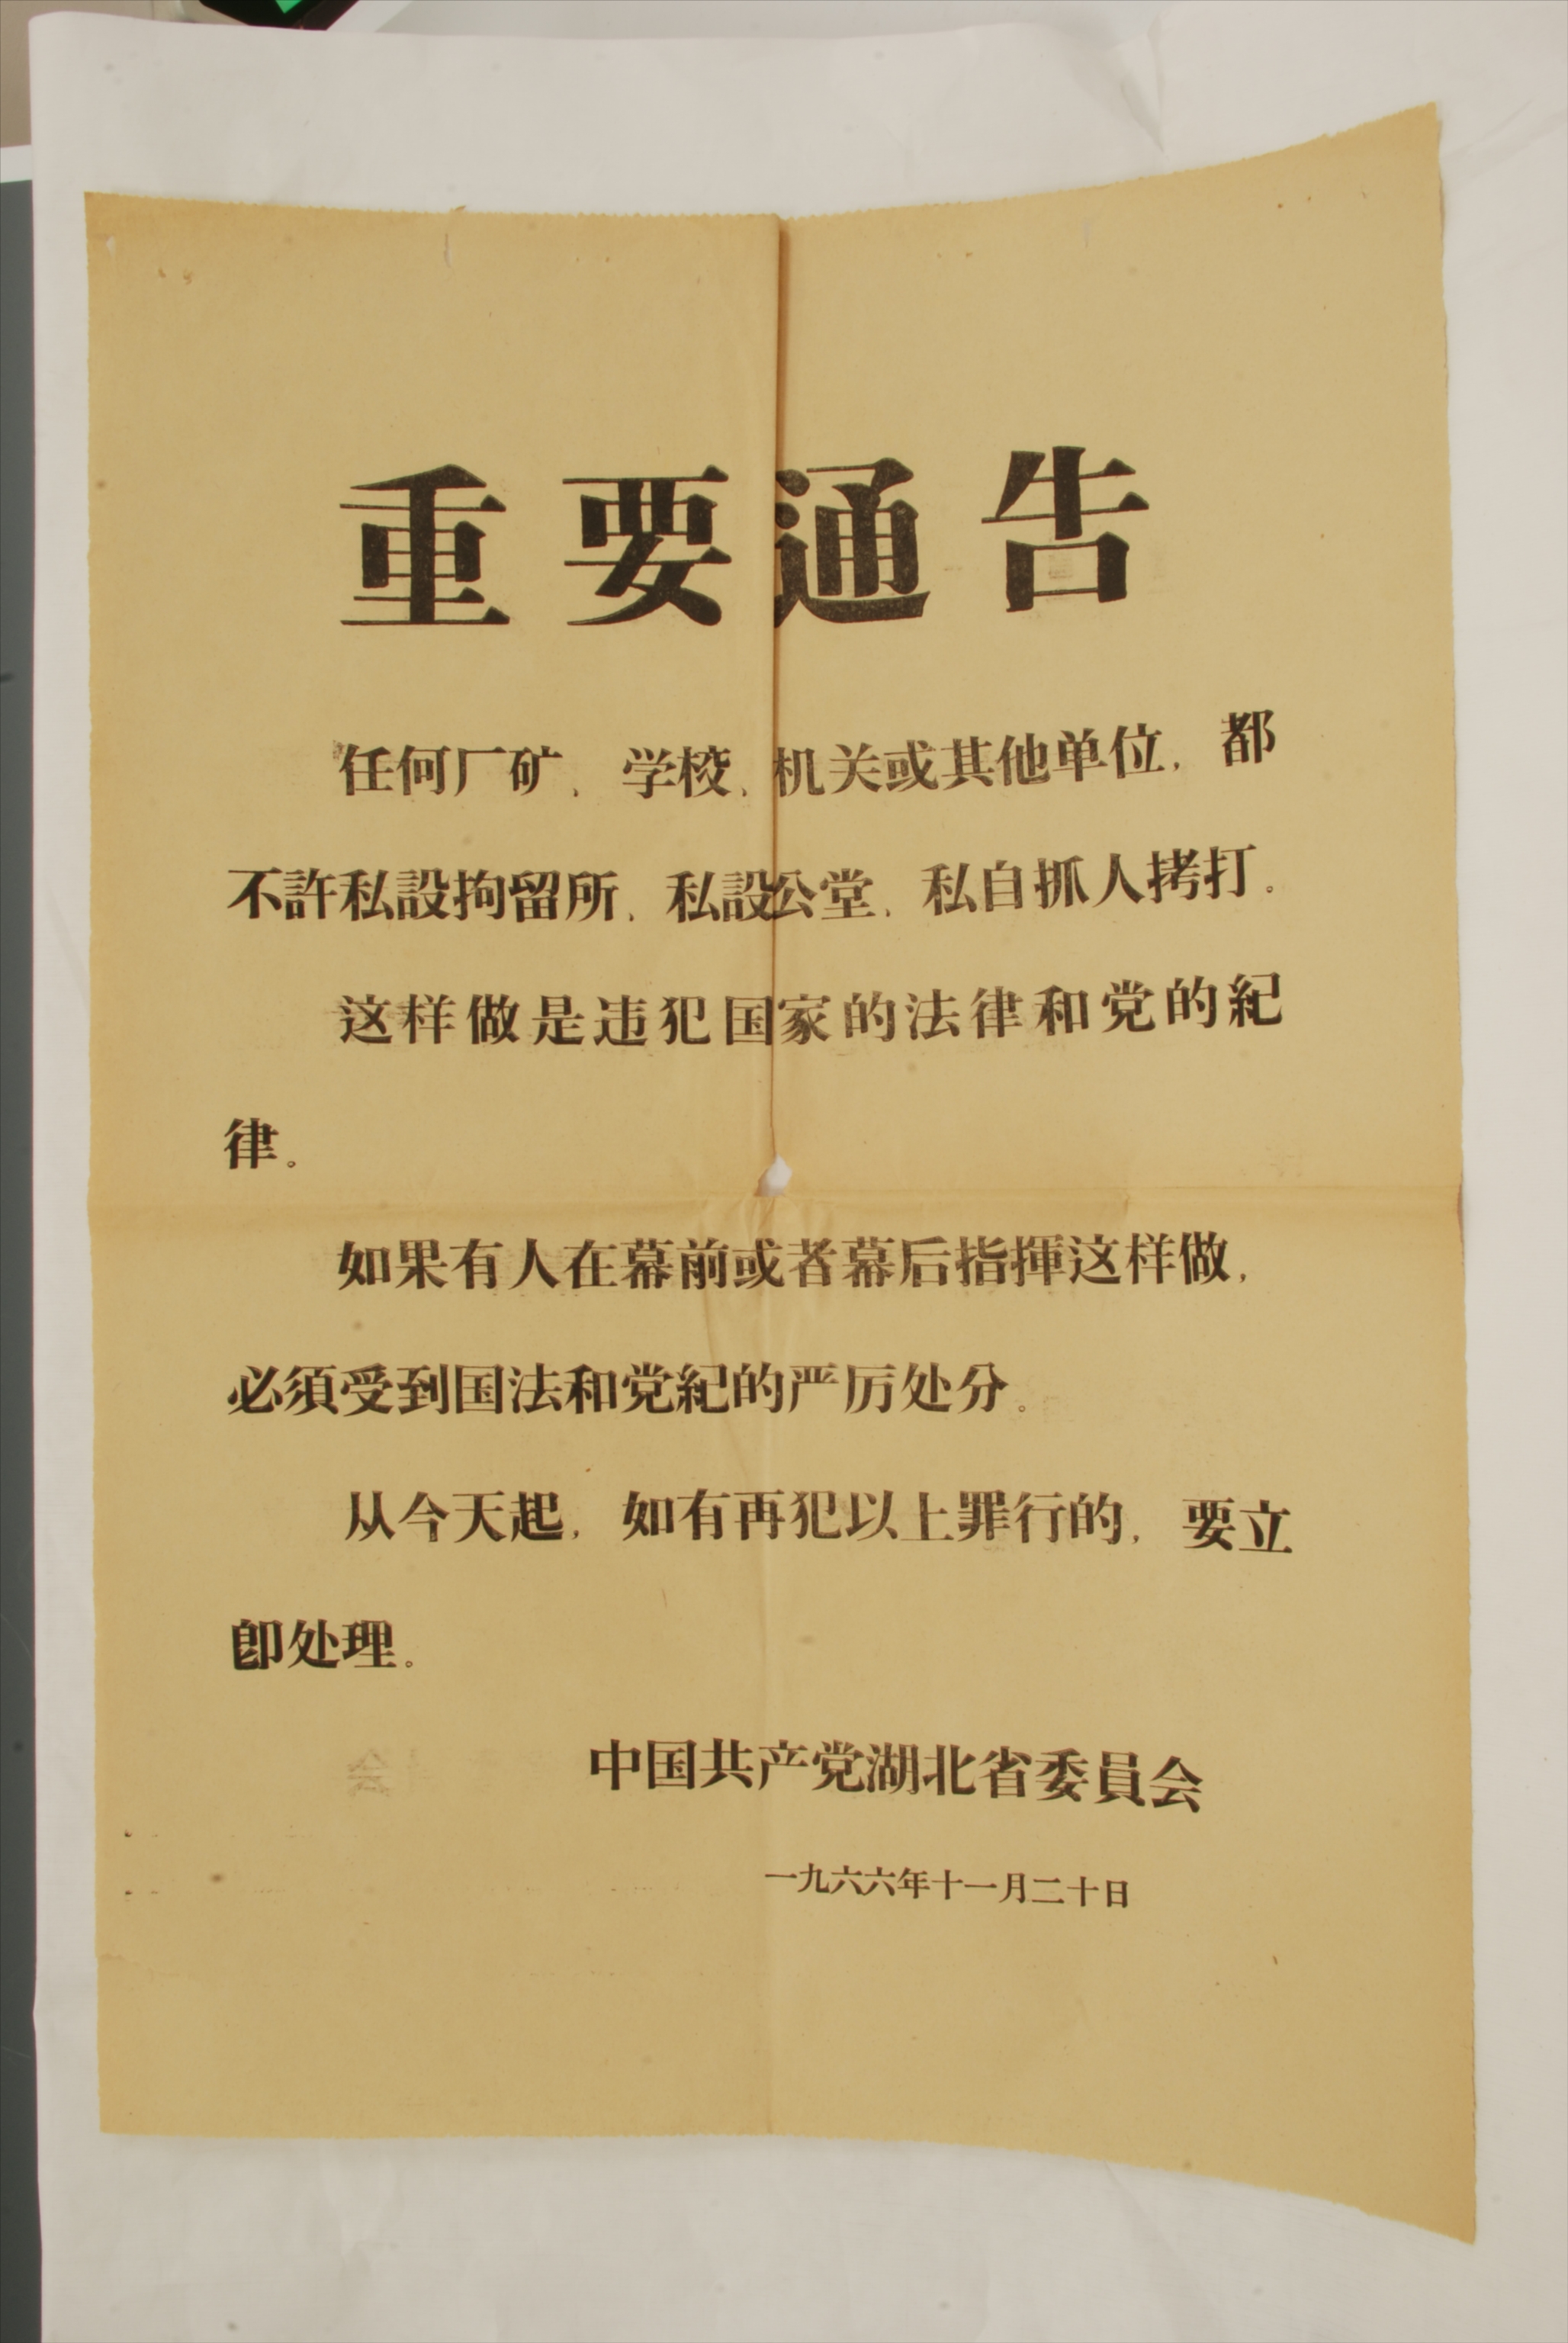 重要通告
任何厂矿、学校、机关或其他单位，都
不許私設拘留所、私設公堂、私自抓人拷打。
这样做是违犯国家的法律和党的紀
律。
如果有人在幕前或者幕后指揮这样做，
必須受到国法和党紀的严厉处分。
从今天起，如有再犯以上罪行的，要立
卽处理。
中国共产党湖北省委員会
一九六六年十一月二十日